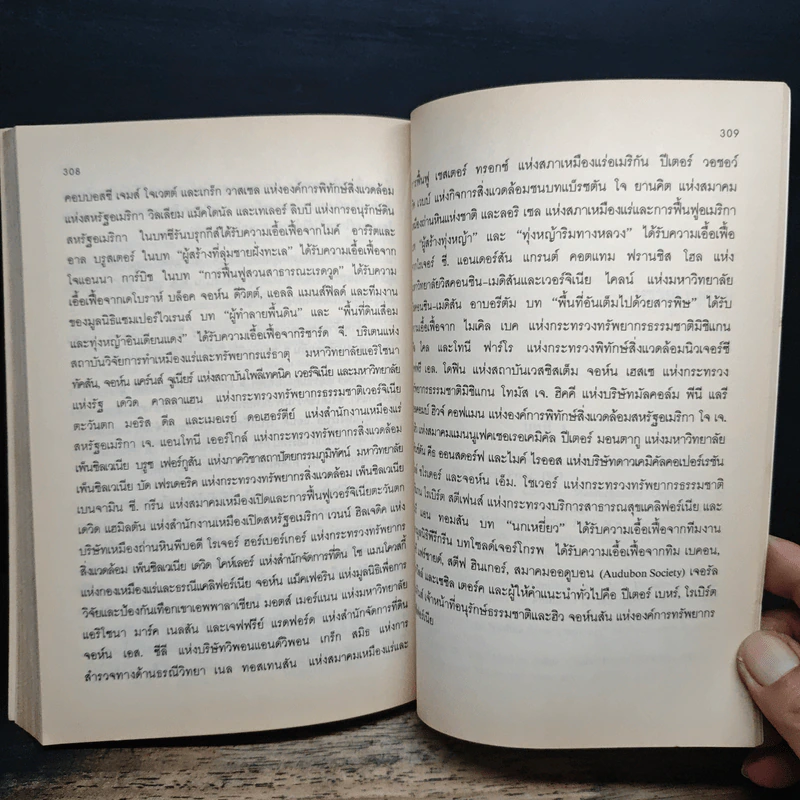 308
คอบบอสซี เจมส์ โจเวตต์ และเกร็ก วาสเซล แห่งองค์การพิทักษ์สิ่งแวดล้อม
แห่งสหรัฐอเมริกา วิลเลียม แม็คโดนัล และเทเลอร์ ลิบบี แห่งการอนุรักษ์ดิน
สหรัฐอเมริกา ในบทซีรันบรุกก์ส์ได้รับความเอื้อเฟื้อจากไมค์ อาร์ริตและ
อาล บรูสเตอร์ ในบท “ผู้สร้างที่ลุ่มชายฝั่งทะเล” ได้รับความเอื้อเฟื้อจาก
โจแอนนา การ์บิช ในบท “การฟื้นฟูสวนสาธารณะเรดวูด” ได้รับความ
เอื้อเฟื้อจากเดโบราห์ บล็อค จอห์น ดีวิตต์, แอลลิ แมนส์ฟิลด์ และทีมงาน
ของมูลนิธิแซมเปอร์ไวเรนส์ บท “ผู้ทำลายพื้นดิน” และ “พื้นที่ดินเสื่อม
และทุ่งหญ้าอินเดียนแดง” ได้รับความเอื้อเฟื้อจากริชาร์ด จี. บริเดนแห่ง
สถาบันวิจัยการทำเหมืองแร่และทรัพยากรแร่ธาตุ มหาวิทยาลัยแอริโซนา
ทัคสัน, จอห์น แคร์นส์ จูเนียร์ แห่งสถาบันโพลีเทคนิค เวอร์จิเนีย และมหาวิทยาลัย
แห่งรัฐ เดวิด คาลลาแฮน แห่งกระทรวงทรัพยากรธรรมชาติเวอร์จิเนีย
ตะวันตก มอริส ดีล และเมอเรย์ ดอเฮอร์ตีย์ แห่งสำนักงานเหมืองแร่
สหรัฐอเมริกา เจ. แอนโทนี เออร์ไกล์ แห่งกระทรวงทรัพยากรสิ่งแวดล้อม
เพ็นซิลเวเนีย บรูซ เฟอร์กูสัน แห่งภาควิชาสถาปัตยกรรมภูมิทัศน์ มหาวิทยาลัย
เพ็นซิลเวเนีย บัด เฟรเดอริค แห่งกระทรวงทรัพยากรสิ่งแวดล้อม เพ็นซิลเวเนีย
เบนจามิน ซี. กรีน แห่งสมาคมเหมืองเปิดและการฟื้นฟูเวอร์จิเนียตะวันตก
เดวิด แฮมิลตัน แห่งสำนักงานเหมืองเปิดสหรัฐอเมริกา เวนน์ ฮิลเจดิค แห่ง
บริษัทเหมืองถ่านหินพีบอดี โรเจอร์ ฮอร์เบอร์เกอร์ แห่งกระทรวงทรัพยากร
สิ่งแวดล้อม เพ็นซิลเวเนีย เดวิด โคห์เลอร์ แห่งสำนักจัดการที่ดิน โซ แมนโควสกี้
แห่งกองเหมืองแร่และธรณีแคลิฟอร์เนีย จอห์น แม็คเฟอริน แห่งมูลนิธิเพื่อการ
วิจัยและป้องกันเทือกเขาแอพพาลาเชียน มอตส์ เมอร์แนน แห่งมหาวิทยาลัย
แอริโซนา มาร์ค เนลสัน และเจฟฟรีย์ แรดฟอร์ด แห่งสำนักจัดการที่ดิน
จอห์น เอส. ซีลี แห่งบริษัทวีพอนแอนด์วีพอน เกร็ก สมิธ แห่งการ
สำรวจทางด้านธรณีวิทยา เนล ทอสเทนสัน แห่งสมาคมเหมืองแร่และ
309
ารฟื้นฟู เชสเตอร์ ทรอกซ์ แห่งสภาเหมืองแร่อเมริกัน ปีเตอร์ วอชอว์
เวบบ์ แห่งกิจการสิ่งแวดล้อมชนบทแบ็รชตัน โจ ยานคิต แห่งสมาคม
งถ่านหินแห่งชาติ และลอริ เซล แห่งสภาเหมืองแร่และการฟื้นฟูอเมริกา
“ผู้สร้างทุ่งหญ้า” และ “ทุ่งหญ้าริมทางหลวง” ได้รับความเอื้อเฟื้อ
โรเจอร์ ซี. แอนเดอร์สัน แกรนต์ คอตแทม ฟรานซิส โฮล แห่ง
วิทยาลัยวิสคอนซิน-เมดิสันและเวอร์จิเนีย ไคลน์ แห่งมหาวิทยาลัย
คอนซิน-เมดิสัน อาบอรีตัม บท “พื้นที่อันเต็มไปด้วยสารพิษ” ได้รับ
เอื้อเฟื้อจาก ไมเคิล เบค แห่งกระทรวงทรัพยากรธรรมชาติมิชิแกน
โคล และโทนี ฟาร์โร แห่งกระทรวงพิทักษ์สิ่งแวดล้อมนิวเจอร์ซี
เอล. โดฟิน แห่งสถาบันเวสซิสเต็ม จอห์น เฮสเซ แห่งกระทรวง
พยากรธรรมชาติมิชิแกน โทมัส เจ. ฮิคคี แห่งบริษัทมัลคอล์ม พีนี แลรี
ฮิวจ์ คอฟแมน แห่งองค์การพิทักษ์สิ่งแวดล้อมสหรัฐอเมริกา โจ เจ.
แห่งสมาคมแมนนูเฟคเซอเรอเคมิคัล ปีเตอร์ มอนตากู แห่งมหาวิทยาลัย
ดัน คือ ออนสดอร์ฟ และไมค์ ไรออส แห่งบริษัทดาวเคมิคัลคอเปอร์เรชัน
ไรเดอร์ และจอห์น เอ็ม. โชเวอร์ แห่งกระทรวงทรัพยากรธรรมชาติ
โรเบิร์ต สตีเฟนส์ แห่งกระทรวงบริการสาธารณสุขแคลิฟอร์เนีย และ
แอน ทอมสัน บท “นกเหยี่ยว” ได้รับความเอื้อเฟื้อจากทีมงาน
มูลนิธิพีรีกรีน บทโซลด์เจอร์โกรพ ได้รับความเอื้อเฟื้อจากทิม เบคอน,
แฟร์ชายด์, สตีฟ ฮินเกอร์, สมาคมออดูบอน (Audubon Society) เจอรัล
และเซซิล เตอร์ค และผู้ให้คำแนะนำทั่วไปคือ ปีเตอร์ เบหร์, โรเบิร์ต
เจ้าหน้าที่อนุรักษ์ธรรมชาติและฮิว จอห์นสัน แห่งองค์การทรัพยากร